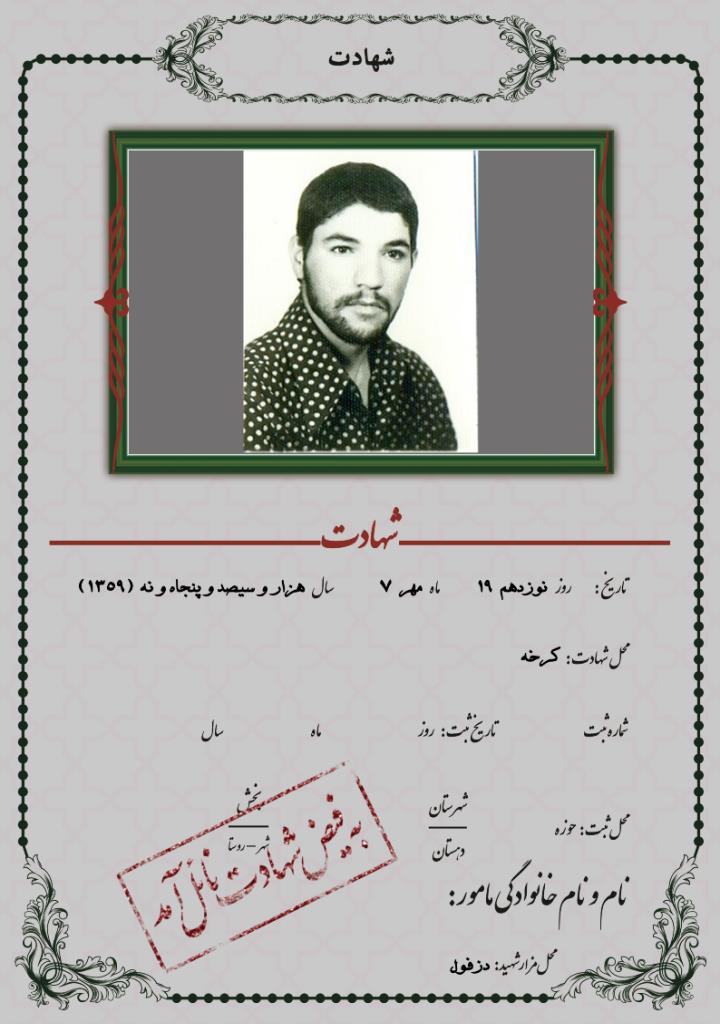 شهادت
شهادت
تاریخ: روز نوزدهم ۱۹ ماه مهر ۷ سال هزار و سیصد و پنجاه و نه (۱۳۵۹)
محل شهادت: کرخه
شماره ثبت تاریخ ثبت: روز ماه سال
محل ثبت: حوزه شهرستان بخش
دهستان شهر-روستا
به فیض شهادت نائل آمد
نام و نام خانوادگی مامور:
محل مزار شهید: دزفول